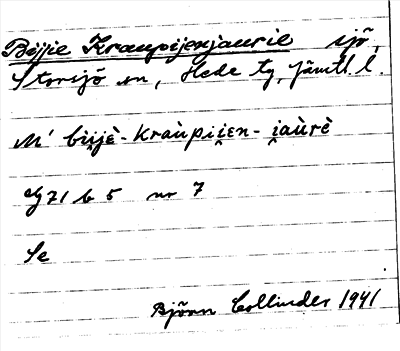 Bijjie Kraupijenjaurie sjö,
Storsjö sn, Hede tg, Jämtl. l.
M' bi̯i̯jè-kraùpii̯en-i̯aùrè
Lg 71 b 5 nr 7
Se
Björn Collinder 1941